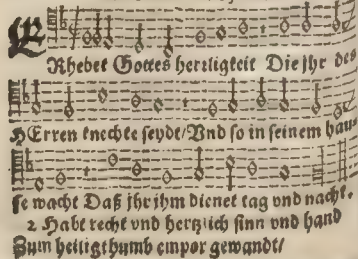 ERhebet Gottes herrligkeit Die jhr des
HErren knechte seydt/Vnd so in seinem hau-
se wacht Daß jhr jhm dienet tag vnd nacht.
2 Habt recht vnd hertzlich sinn vnd hand
Zum heiligthumb empor gewandt/